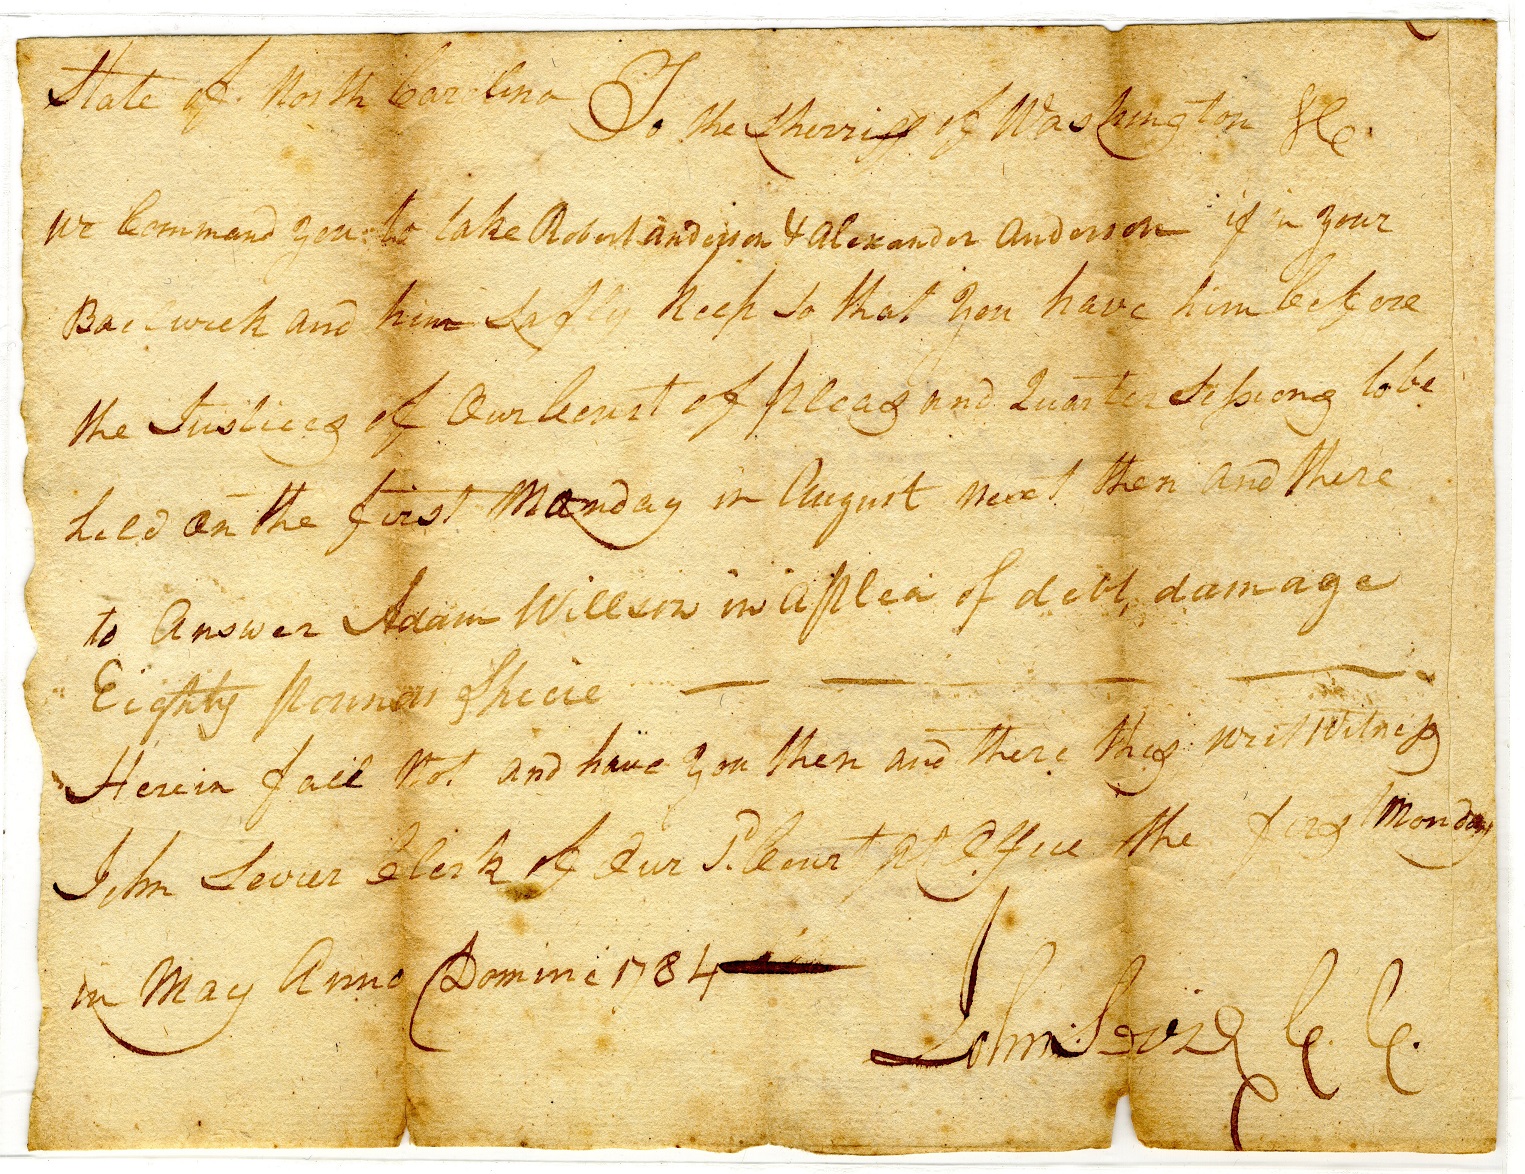 State of North Carolina To the Sherriff of Washington &c.
We Command you to take Robert Anderson & Alexander Anderson if in your
Bailwick and him Safly keep So that you have him before
the Justices of Our Court of pleas and Quarter Sessions to be
held on the first Monday in August next then and there
to Answer Adam Willson in a plea of debt, damage
Eighty pounds Specie
Herein fail Not and have you then and there this writ Witness
John Sevier Clerk of Our Sd. Court At Office the first Monday
in May Anno Domini 1784
John Sevier C. C.